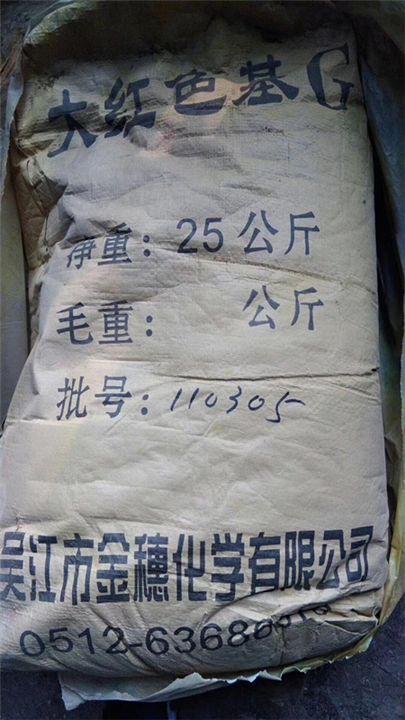 大红色基G
净重：25公斤
毛重： 公斤
批号：110305
吴江市金穗化学有限公司